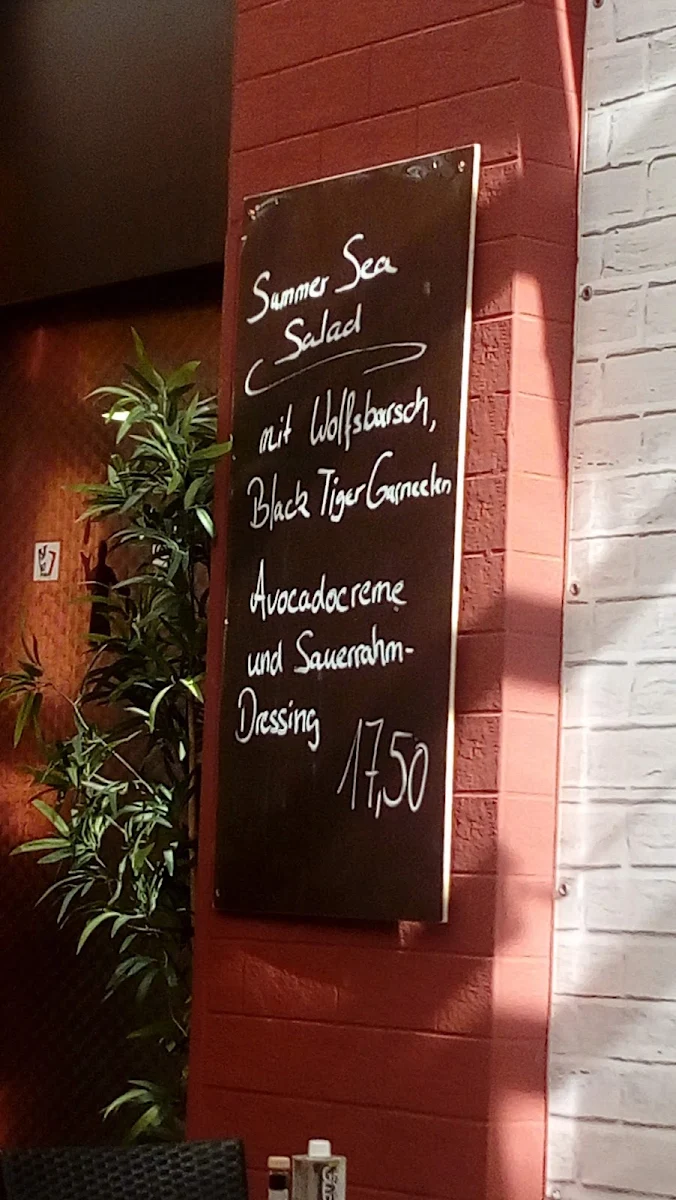 Summer Sea
Salad
mit Wolfsbarsch,
Black Tiger Garneelen
Avocadocreme
und Sauerrahm-
Dressing
17,50